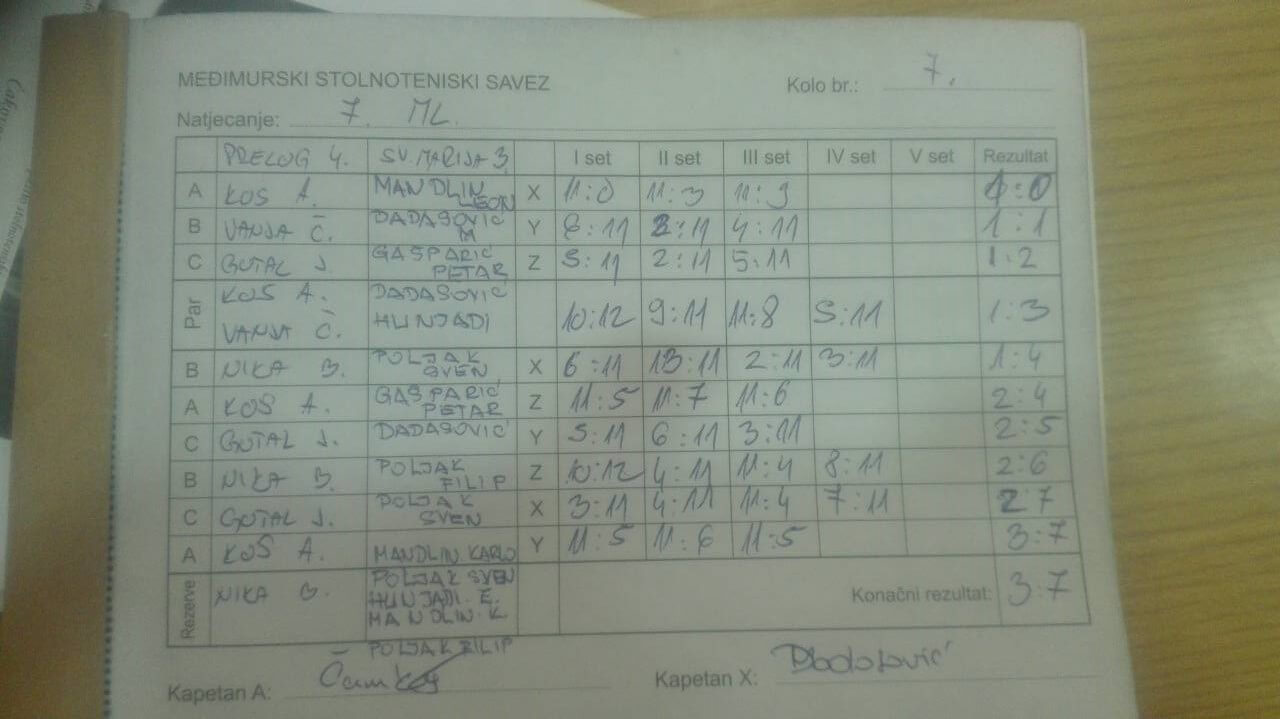 MEĐIMURSKI STOLNOTENISKI SAVEZ Kolo br.: 7.
Natjecanje: 7. ML.
PRELOG 4. SV. MARIJA 3 I set II set III set IV set V set Rezultat
A KOS A. MANDLIN LEON X 11:0 11:3 11:9 1:0
B VANJA Č. DADASOVIĆ M Y 6:11 2:11 4:11 1:1
C GUTAL J. GAŠPARIĆ PETAR Z 5:11 2:11 5:11 1:2
Par KOS A. DADASOVIĆ
VANJA Č. HUNJADI 10:12 9:11 11:8 5:11 1:3
B NIKA B. POLJAK SVEN X 6:11 13:11 2:11 3:11 1:4
A KOS A. GAŠPARIĆ PETAR Z 11:5 11:7 11:6 2:4
C GUTAL J. DADASOVIĆ Y 5:11 6:11 3:11 2:5
B NIKA B. POLJAK FILIP Z 10:12 4:11 11:4 8:11 2:6
C GUTAL J. POLJAK SVEN X 3:11 4:11 11:4 7:11 2:7
A KOS A. MANDLIN KARLO Y 11:5 11:6 11:5 3:7
Rezerve NIKA B. POLJAK SVEN
HUNJADI E.
MANDLIN K.
Konačni rezultat: 3:7
POLJAK FILIP
Kapetan A: Kapetan X: